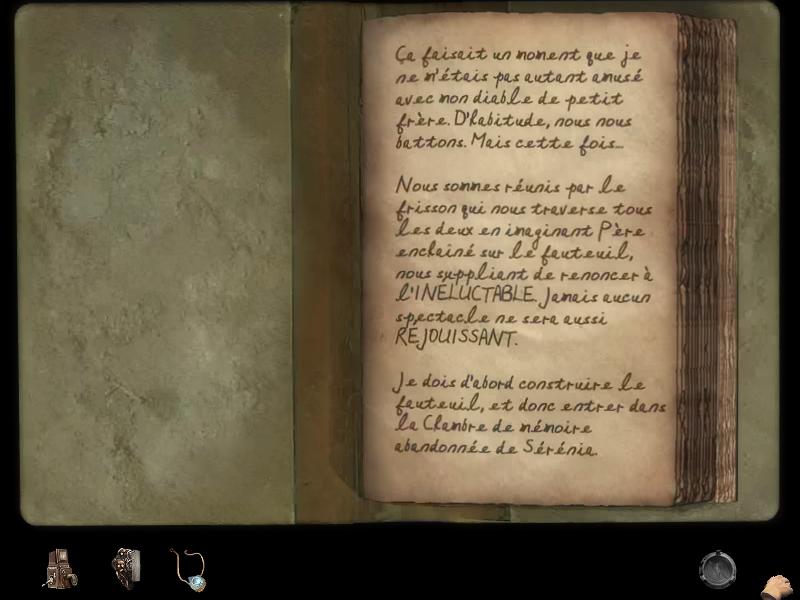 Ça faisait un moment que je
ne m'étais pas autant amusé
avec mon diable de petit
frère. D'habitude, nous nous
battons. Mais cette fois...
Nous sommes réunis par le
frisson qui nous traverse tous
les deux en imaginant Père
enchaîné sur le fauteuil,
nous suppliant de renoncer à
l'INELUCTABLE. Jamais aucun
spectacle ne sera aussi
REJOUISSANT.
Je dois d'abord construire le
fauteuil, et donc entrer dans
la Chambre de mémoire
abandonnée de Sérénia.